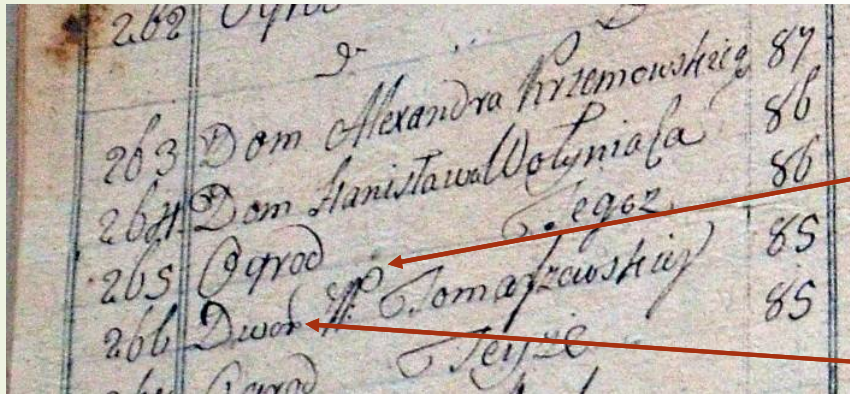 262 Ogrod
263 Dom Alexandra Krzemowskieg 87
264 Dom Stanisława Wołyniaka 86
265 Ogrod Tegoz 86
266 Dwor W. Tomaszewskiey 85
Ogrod Teyże 85